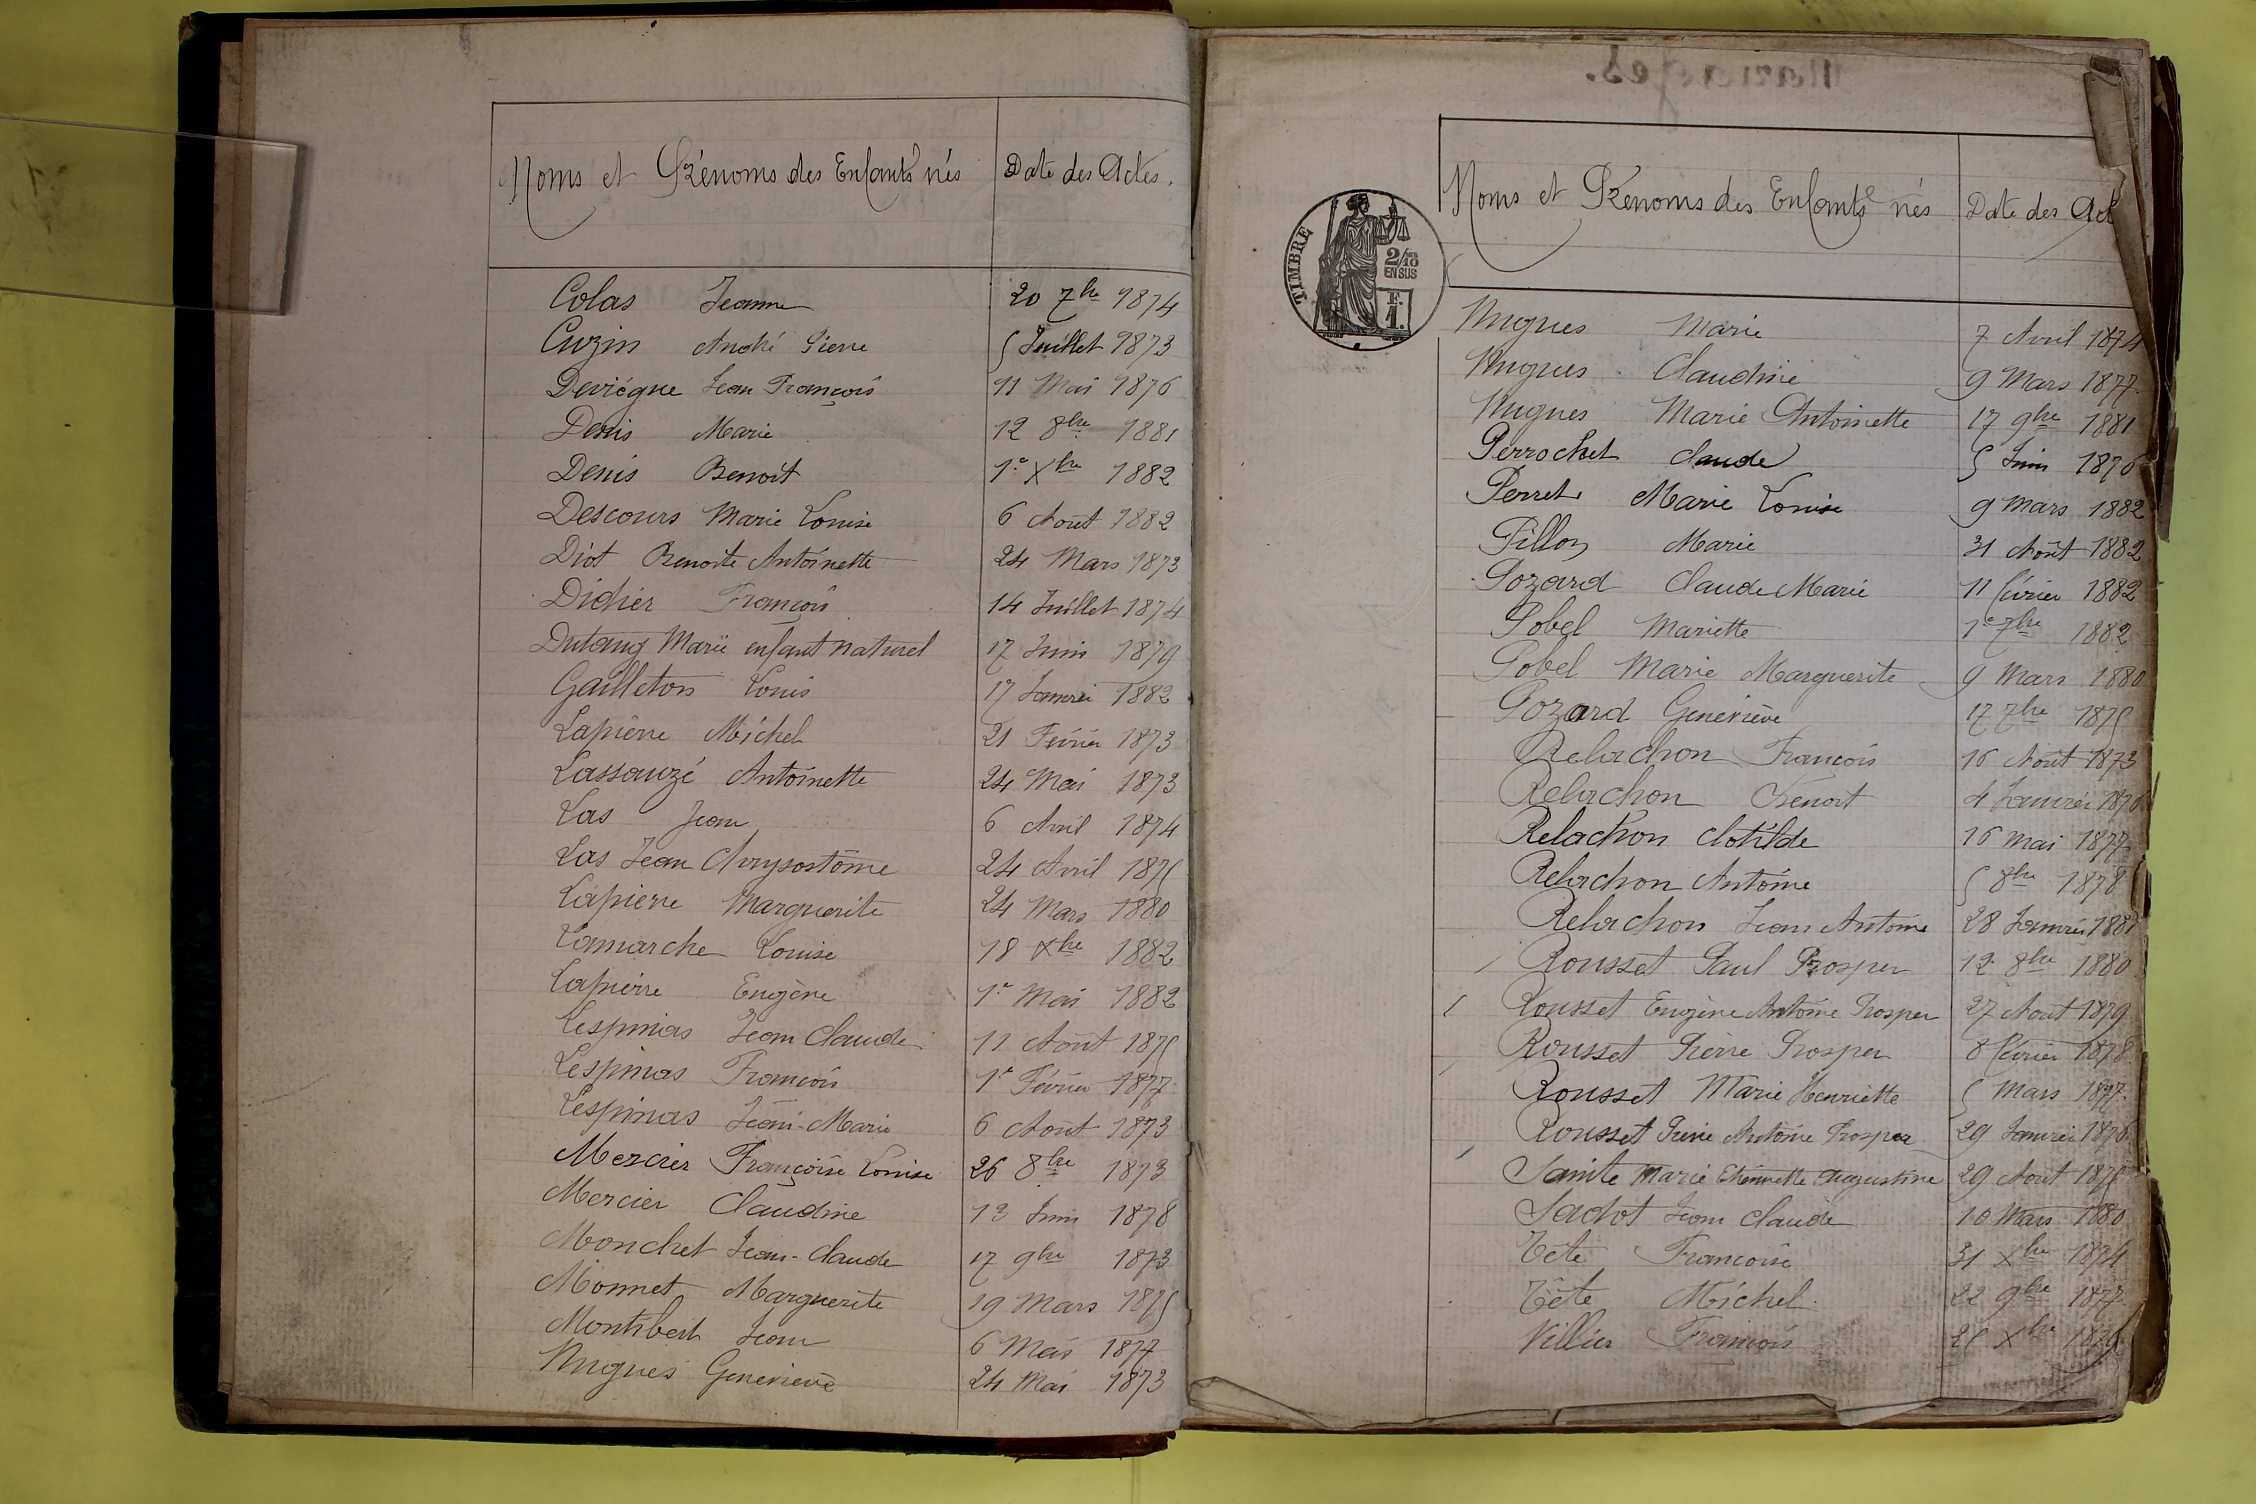 Noms et Prénoms des Enfants nés Date des Actes.
Colas Jeanne 20 7bre 1874
Cuzin André Pierre 5 Juillet 1873
Deviègne Jean François 11 Mai 1876
Denis Marie 12 8bre 1881
Denis Benoit 1er Xbre 1882
Descours Marie Louise 6 Août 1882
Diot Benoite Antoinette 24 Mars 1873
Didier François 14 Juillet 1874
Dutang Marie enfant naturel 17 Juin 1879
Gailleton Louis 17 Janvier 1882
Lapierre Michel 21 Février 1873
Lassauzé Antoinette 24 Mai 1873
Las Jean 6 Avril 1874
Las Jean Chrysostôme 24 Avril 1875
Lapierre Marguerite 24 Mars 1880
Lamarche Louise 18 Xbre 1882
Lapierre Eugène 1er Mai 1882
Lespinas Jean Claude 11 Août 1875
Lespinas François 1er Février 1877
Lespinas Jean-Marie 6 Août 1873
Mercier Françoise Louise 26 8bre 1873
Mercier Claudine 13 Juin 1878
Monchet Jean-Claude 17 9bre 1873
Monnet Marguerite 19 Mars 1875
Montibert Jean 6 Mai 1877
Mugues Geneviève 24 Mai 1873
Mariages.
TIMBRE
2/10 EN SUS
F. 1.
Noms et Prénoms des Enfants nés Date des Act
Mugues Marie 7 Avril 1874
Mugues Claudine 9 Mars 1877
Mugues Marie Antoinette 17 9bre 1881
Perrochet Claude 5 Juin 1876
Perret Marie Louise 9 Mars 1882
Pillon Marie 31 Août 1882
Pozard Claude Marie 11 février 1882
Pobel Mariette 1er 7bre 1882
Pobel Marie Marguerite 9 Mars 1880
Pozard Geneviève 17 7bre 1875
Relachon François 16 Août 1873
Relachon Benoit 4 Janvier 1876
Relachon Clotilde 16 Mai 1877
Relachon Antoine 5 8bre 1878
Relachon Jean Antoine 28 Janvier 1881
Rousset Paul Prosper 12 8bre 1880
Rousset Eugène Antoine Prosper 27 Août 1879
Rousset Pierre Prosper 8 février 1878
Rousset Marie Henriette 5 Mars 1877
Rousset Pierre Antoine Prosper 29 Janvier 1876
Sainte Marie Etiennette Augustine 29 Août 1875
Sadot Jean Claude 10 Mars 1880
Tête Françoise 31 Xbre 1874
Tête Michel 22 9bre 1877
Villier François Xbre